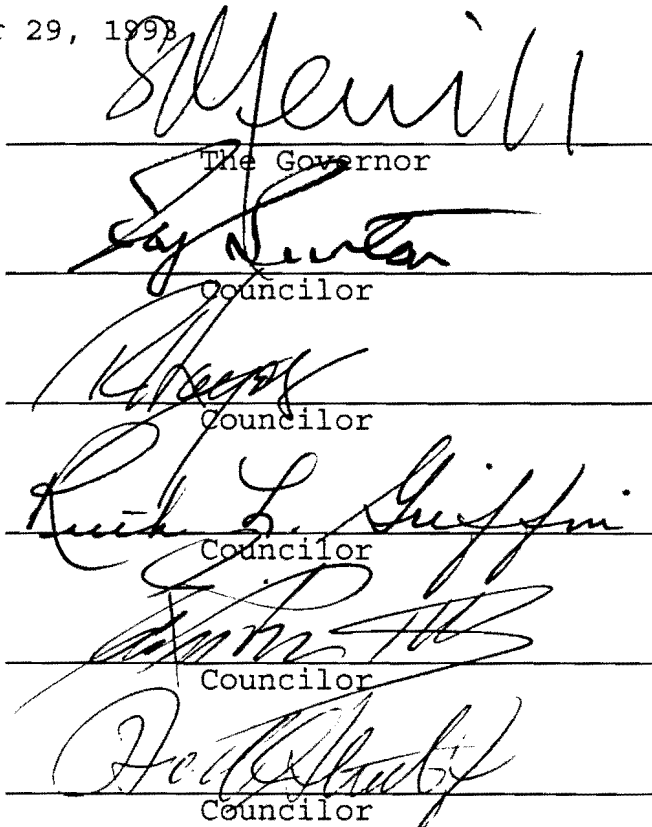 r 29, 1993
SMerrill
The Governor
Ray Burton
Councilor
Councilor
Ruth L. Griffin
Councilor
Councilor
Councilor